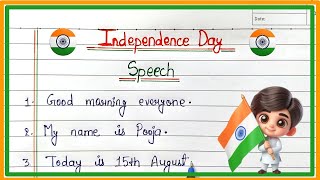 Date:
Independence Day
Speech
1. Good mauning everyone.
2. My name is Pooja.
3. Today is 15th August